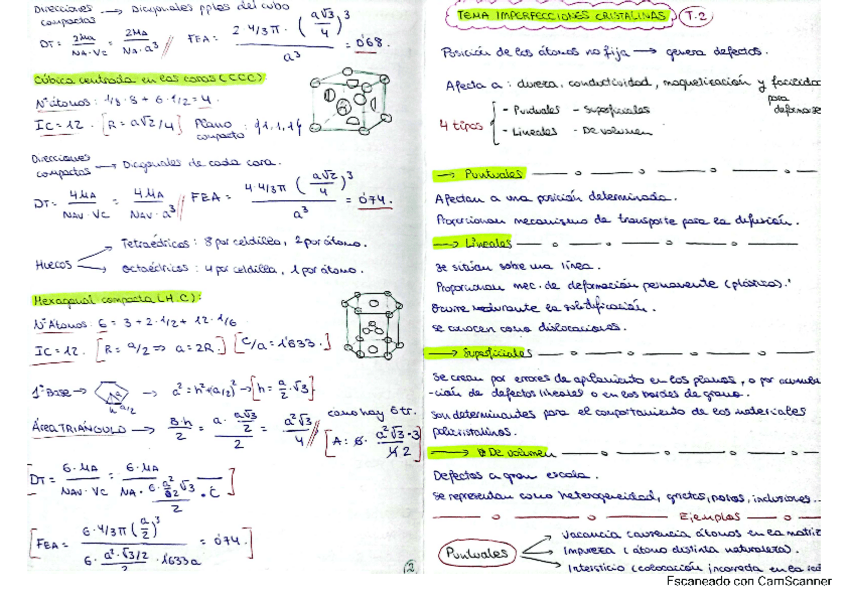 Direcciones compactas → Diagonales pples del cubo
DT = 2MA / NA·VC = 2MA / NA·a³ // FEA = 2·4/3π·(a√3/4)³ / a³ = 0'68.
Cúbica centrada en las caras (CCC)
Nº átomos: 1/8·8 + 6·1/2 = 4.
IC = 12. [R = a√2/4] Plano compacto: {1,1,1}
Direcciones compactas → Diagonales de cada cara.
DT = 4MA / NAV·VC = 4MA / NAV·a³ // FEA = 4·4/3π (a√2/4)³ / a³ = 0'74.
Huecos
Tetraédricos: 8 por celdilla, 2 por átomo.
Octaédricos: 4 por celdilla, 1 por átomo.
Hexagonal compacta (H.C):
Nº Átomos: 6 = 3 + 2·1/2 + 12·1/6
IC = 12. [R = a/2 ⇒ a = 2R.] [C/a = 1'633.]
1º Base → a → a² = h² + (a/2)² → [h = a/2·√3]
h a/2
ÁREA TRIÁNGULO → B·h / 2 = a· a√3/2 / 2 = a²√3 / 4 // como hay 6 tr.
[A: 6· a²√3·3 / 2]
[DT = 6·MA / NAV·VC = 6·MA / NA· 6·a²√3 / 2 · C]
[FEA = 6·4/3π (a/2)³ / 6· a²·√3/2 / 2 ·1633a = 0'74.]
2
TEMA IMPERFECCIONES CRISTALINAS T.2
Posición de los átomos no fija → genera defectos.
Afecta a: dureza, conductividad, magnetización y facilidad
para deformarse
4 tipos
- Puntuales - Superficiales
- Lineales - De volumen
→ Puntuales
Afectan a una posición determinada.
Proporcionan mecanismo de transporte para la difusión.
→ Lineales
Se sitúan sobre una línea.
Proporcionan mec. de deformación permanente (plástica).
Ocurre durante la solidificación.
se conocen como dislocaciones.
→ Superficiales
Se crean por errores de apilamiento en los planos, o por acumula
-ción de defectos lineales o en los bordes de grano.
Son determinantes para el comportamiento de los materiales
policristalinos.
→ De volumen
Defectos a gran escala.
Se representan como heterogeneidad, grietas, poros, inclusiones...
Ejemplos
Puntuales
Vacancia (ausencia átomos en la matriz
Impureza (átomo distinta naturaleza).
Intersticio (colocación incorrecta en la red
Escaneado con CamScanner